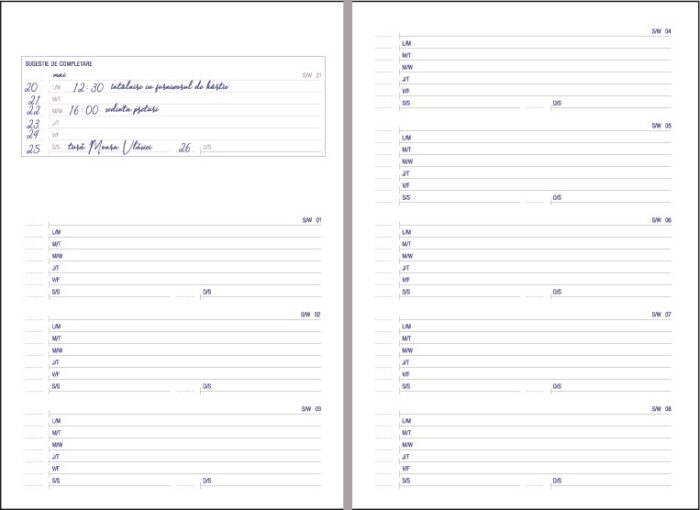 SUGESTIE DE COMPLETARE
mai S/W 21
20 L/M 12:30 întâlnire cu furnizorul de hârtie
21 M/T
22 M/W 16:00 sedinta preturi
23 J/T
24 V/T
25 S/S tură Moara Vlăsiei 26 D/S
S/W 01
L/M
M/T
M/W
J/T
V/F
S/S D/S
S/W 02
L/M
M/T
M/W
J/T
V/F
S/S D/S
S/W 03
L/M
M/T
M/W
J/T
V/F
S/S D/S
S/W 04
L/M
M/T
M/W
J/T
V/F
S/S D/S
S/W 05
L/M
M/T
M/W
J/T
V/F
S/S D/S
S/W 06
L/M
M/T
M/W
J/T
V/F
S/S D/S
S/W 07
L/M
M/T
M/W
J/T
V/F
S/S D/S
S/W 08
L/M
M/T
M/W
J/T
V/F
S/S D/S